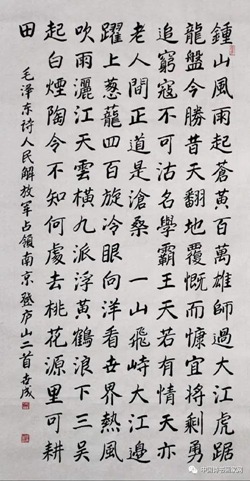 鍾山風雨起蒼黃百萬雄師過大江虎踞
龍盤今勝昔天翻地覆慨而慷宜將剩勇
追窮寇不可沽名學霸王天若有情天亦
老人間正道是滄桑 一山飛峙大江邊
躍上葱蘢四百旋冷眼向洋看世界熱風
吹雨灑江天雲橫九派浮黃鶴浪下三吳
起白煙陶令不知何處去桃花源里可耕
田
毛澤東诗人民解放军占領南京登庐山二首
中国诗书画家网